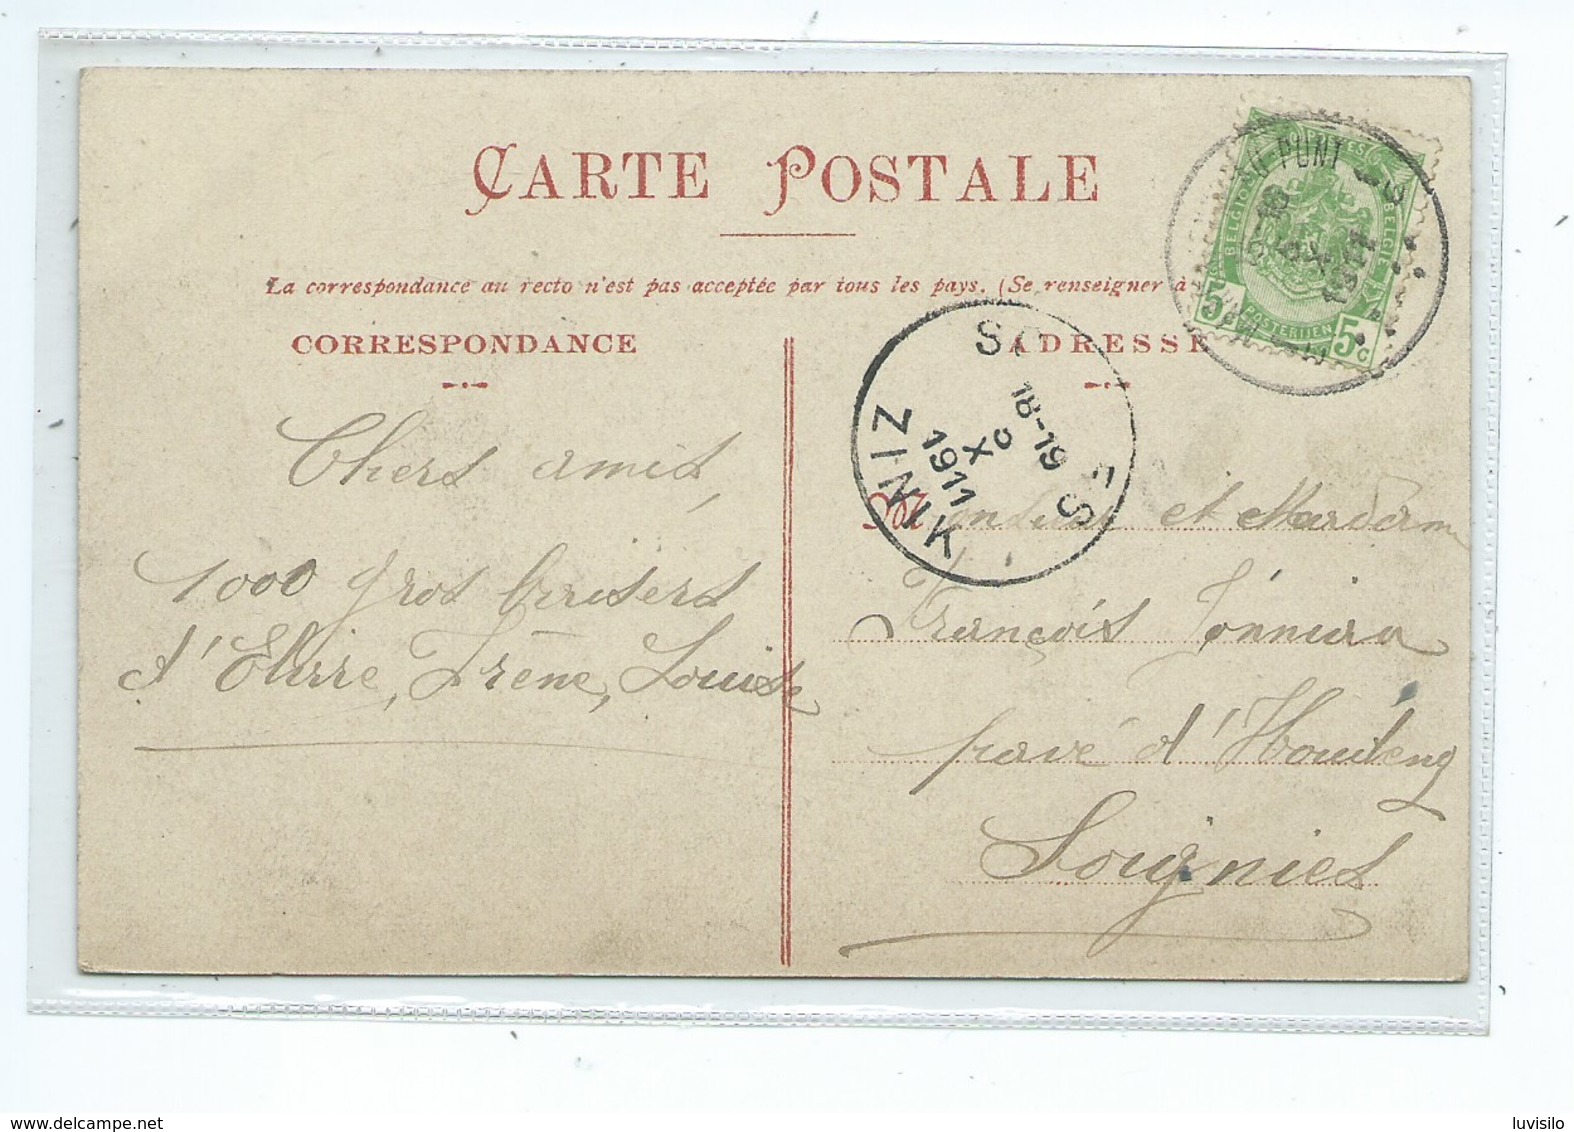 CARTE POSTALE
La correspondance au recto n'est pas acceptée par tous les pays. (Se renseigner à
CORRESPONDANCE
ADRESSE
BELGIQUE BELGIË
POSTERIJEN
5c 5c
18-19
X
1911
ZINIK
X
1911
Chers amis,
1000 gros baisers
d'Elvire, Irène, Louise
Monsieur et Madame
François
pavé d'Houdeng
Soignies
luvisilo